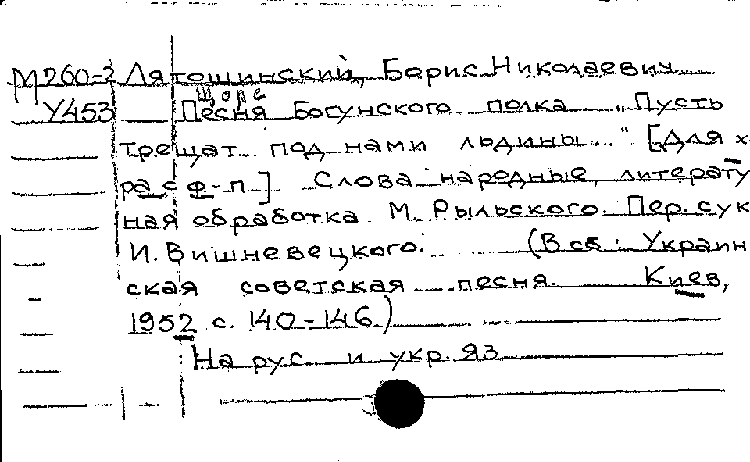 М260-3 Лятошинский, Борис Николаевич
Щорс
У453 Песня Богунского полка "Пусть
трещат под нами людины..." [Для х
ра с ф-п] Слова народные, литерату
ная обработка М. Рыльского. Пер. с ук
И. Вишневецкого. (В сб: Украин
ская советская песня. Киев,
1952 с. 140-146)
На рус. и укр. яз